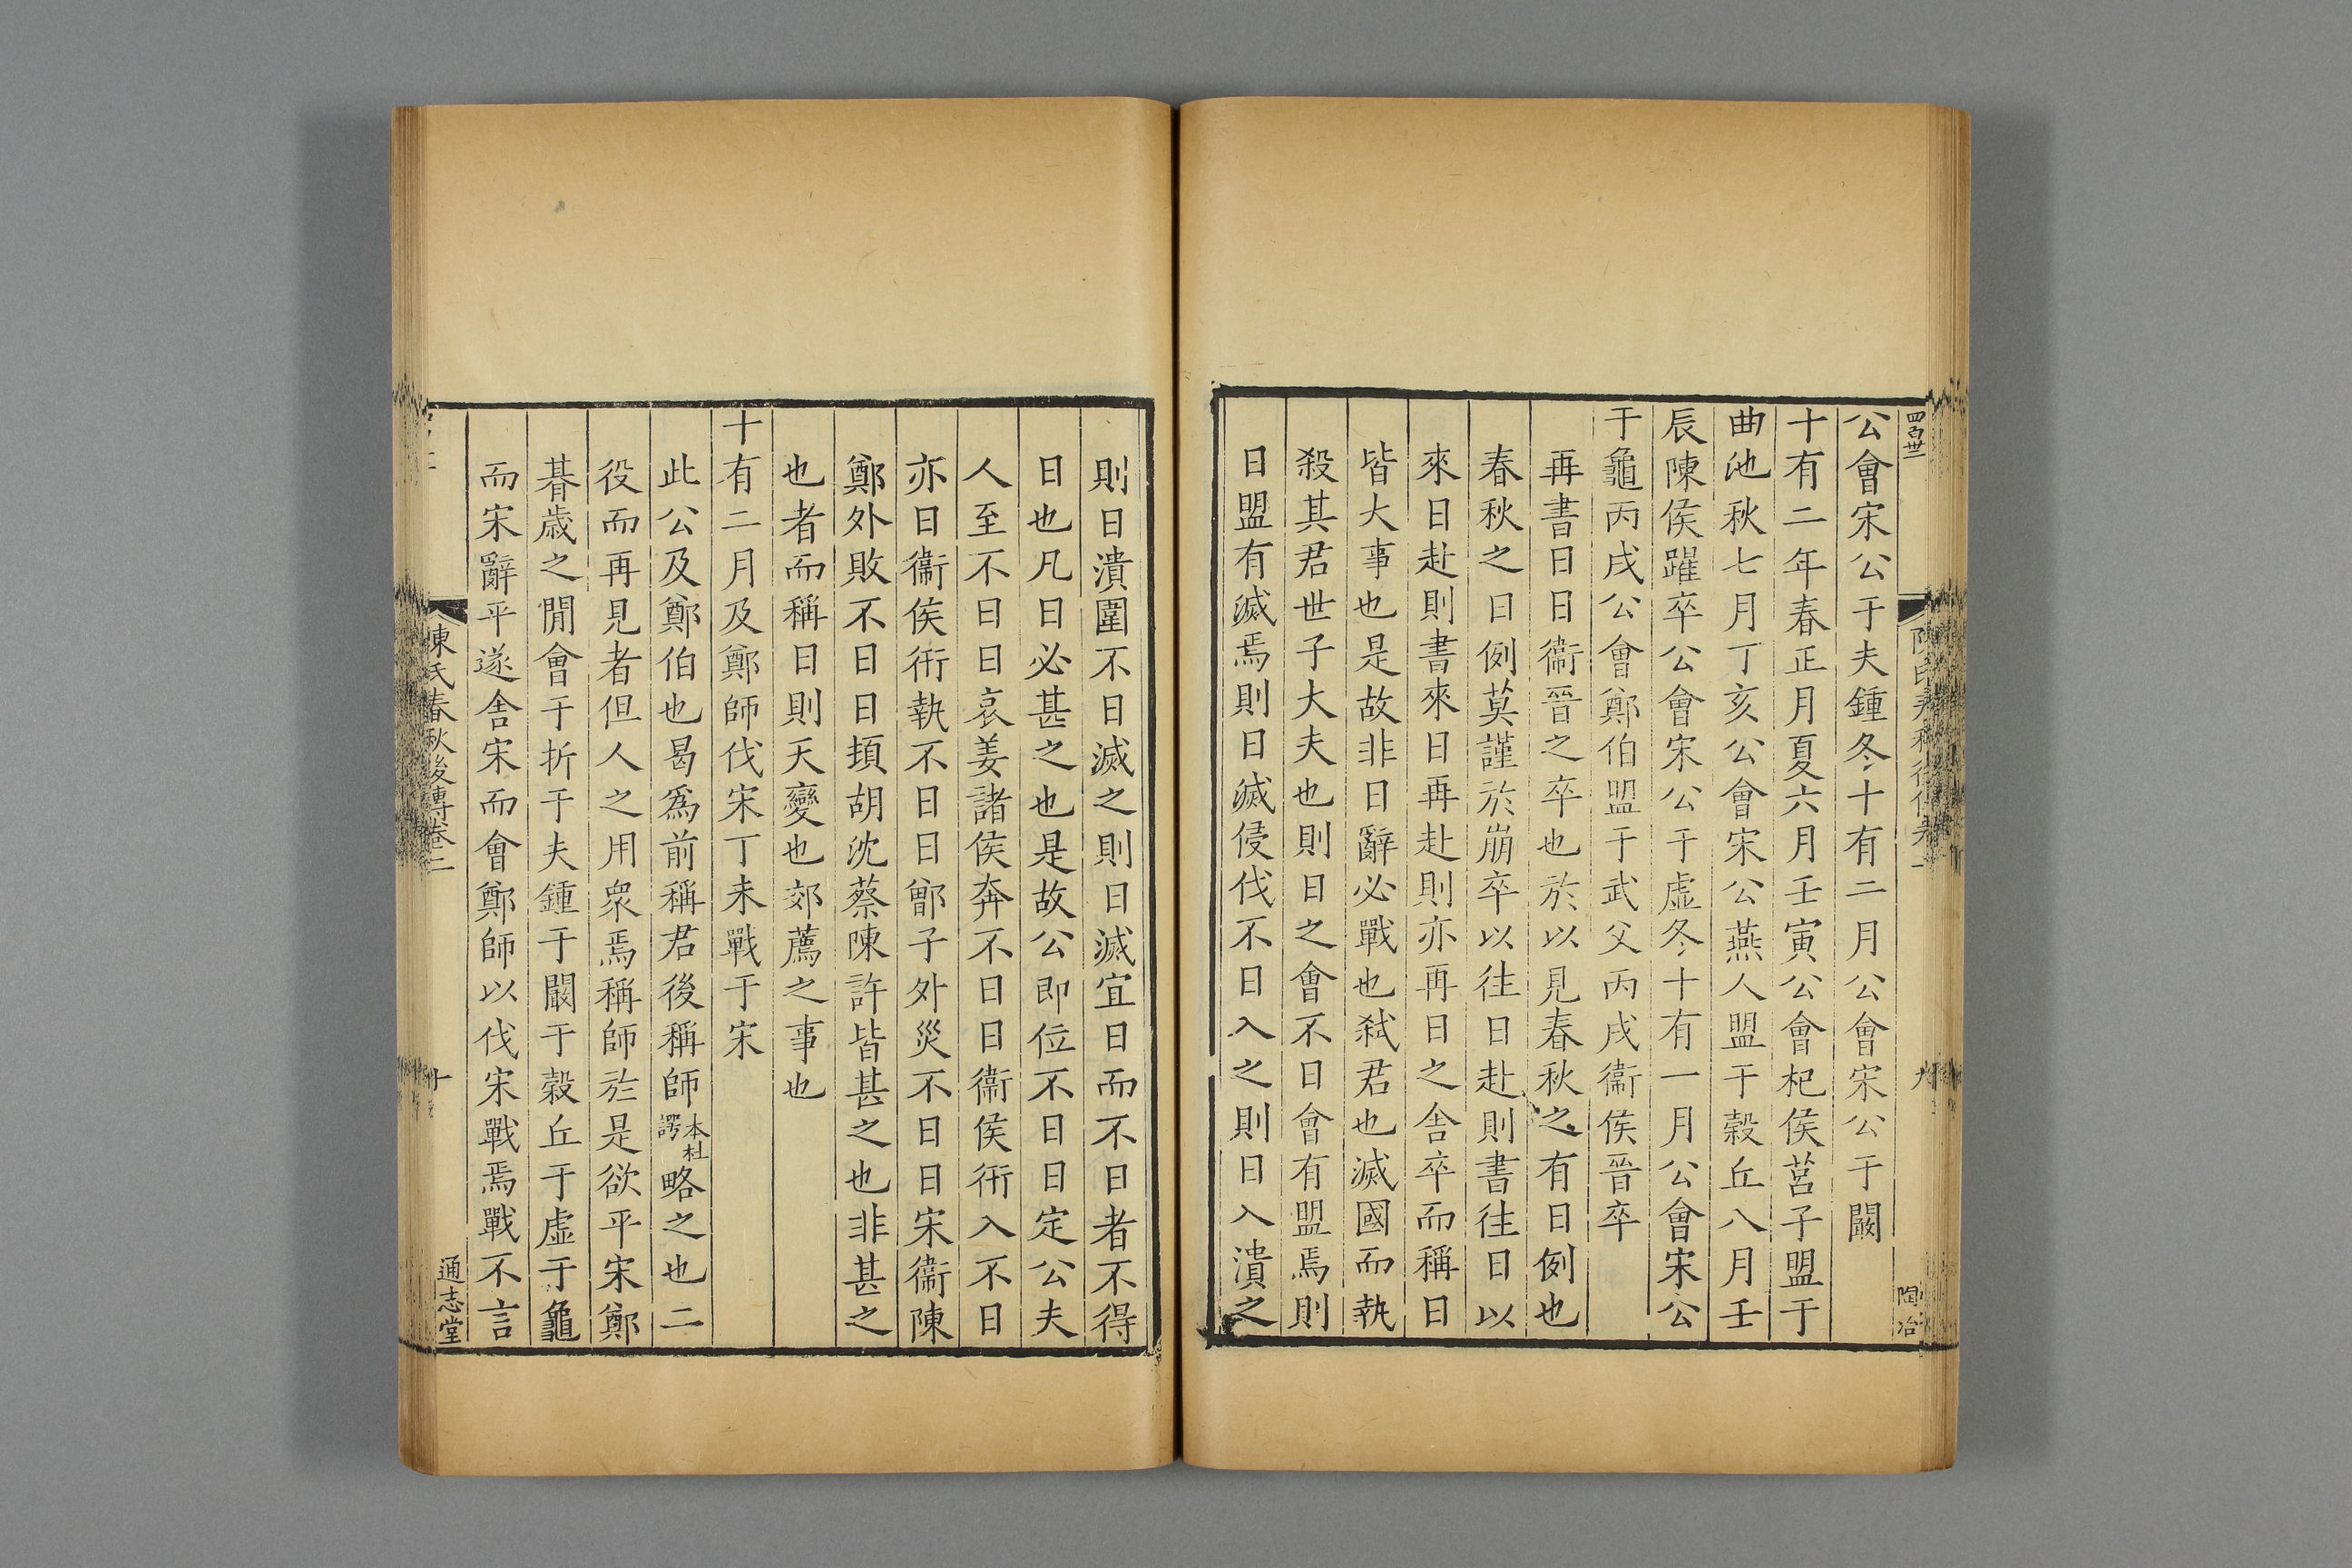 公會宋公于夫鍾冬十有二月公會宋公于闞
十有二年春正月夏六月壬寅公會杞侯莒子盟于
曲池秋七月丁亥公會宋公燕人盟于穀丘八月壬
辰陳侯躍卒公會宋公于虛冬十有一月公會宋公
于龜丙戌公會鄭伯盟于武父丙戌衞侯晉卒
再書日日衞晉之卒也於以見春秋之有日例也
春秋之日例莫謹於崩卒以往日赴則書往日以
來日赴則書來日再赴則亦再日之舍卒而稱日
皆大事也是故非日辭必戰也弑君也滅國而執
殺其君世子大夫也則日之會不日會有盟焉則
日盟有滅焉則日滅侵伐不日入之則日入潰之
則日潰圍不日滅之則日滅宜日而不日者不得
日也凡日必甚之也是故公即位不日日定公夫
人至不日日哀姜諸侯奔不日日衞侯衎入不日
亦日衞侯衎執不日日鄫子外災不日日宋衞陳
鄭外敗不日日頓胡沈蔡陳許皆甚之也非甚之
也者而稱日則天變也郊薦之事也
十有二月及鄭師伐宋丁未戰于宋
此公及鄭伯也曷爲前稱君後稱師本杜諤略之也二
役而再見者但人之用衆焉稱師於是欲平宋鄭
朞歲之閒會于折于夫鍾于闞于穀丘于虛于龜
而宋辭平遂舍宋而會鄭師以伐宋戰焉戰不言
陳氏春秋後傳卷二
十
通志堂
九
陶冶